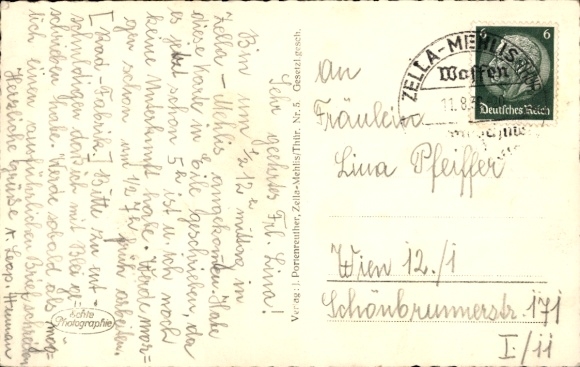 Sehr geehrtes Frl. Lina!
Bin um ½ 12 h mittag in
Zella-Mehlis angekommen. Habe
diese Karte in Eile geschrieben, da
es jetzt schon 5 h ist u. ich noch
keine Unterkunft habe. Werde mor=
gen schon um ½ 7 h früh arbeiten.
[Rad-Fabrik] Bitte zu ent-
schuldigen daß ich mit Blei ge=
schrieben habe. Werde sobald als mög=
lich einen ausführlichen Brief schreiben
Herzliche Grüße v. Leop. Human
Echte
Photographie
Verlag: J. Portenreuther, Zella-Mehlis/Thür. Nr. 5. Gesetzl. gesch.
ZELLA-MEHLIS
Waffen
11.8.
6 6
Deutsches Reich
an
Fräulein
Lina Pfeiffer
Wien 12./1
Schönbrunnerstr 171
I/11